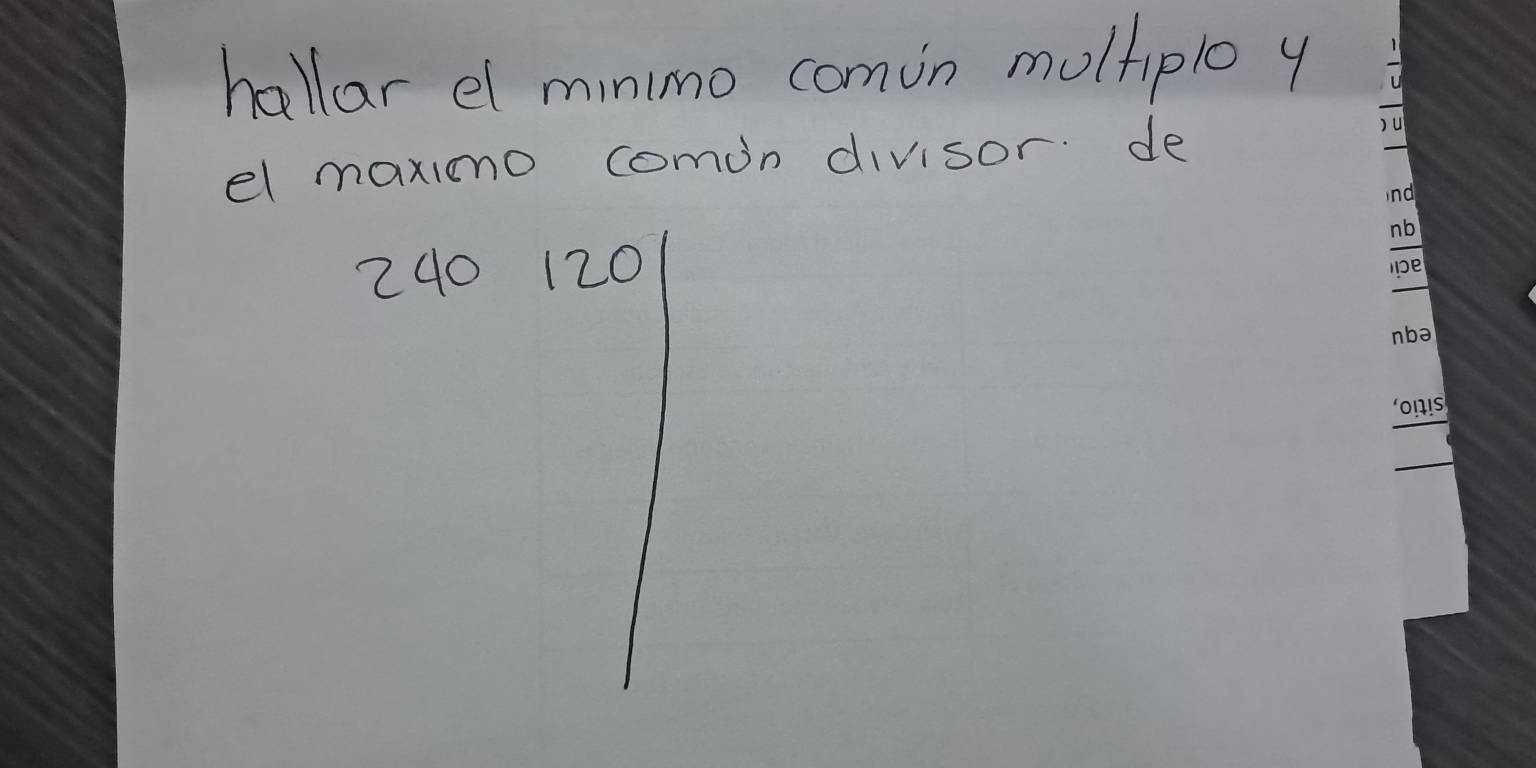 hallar el minimo común multiplo y
el maximo común divisor. de
240 120